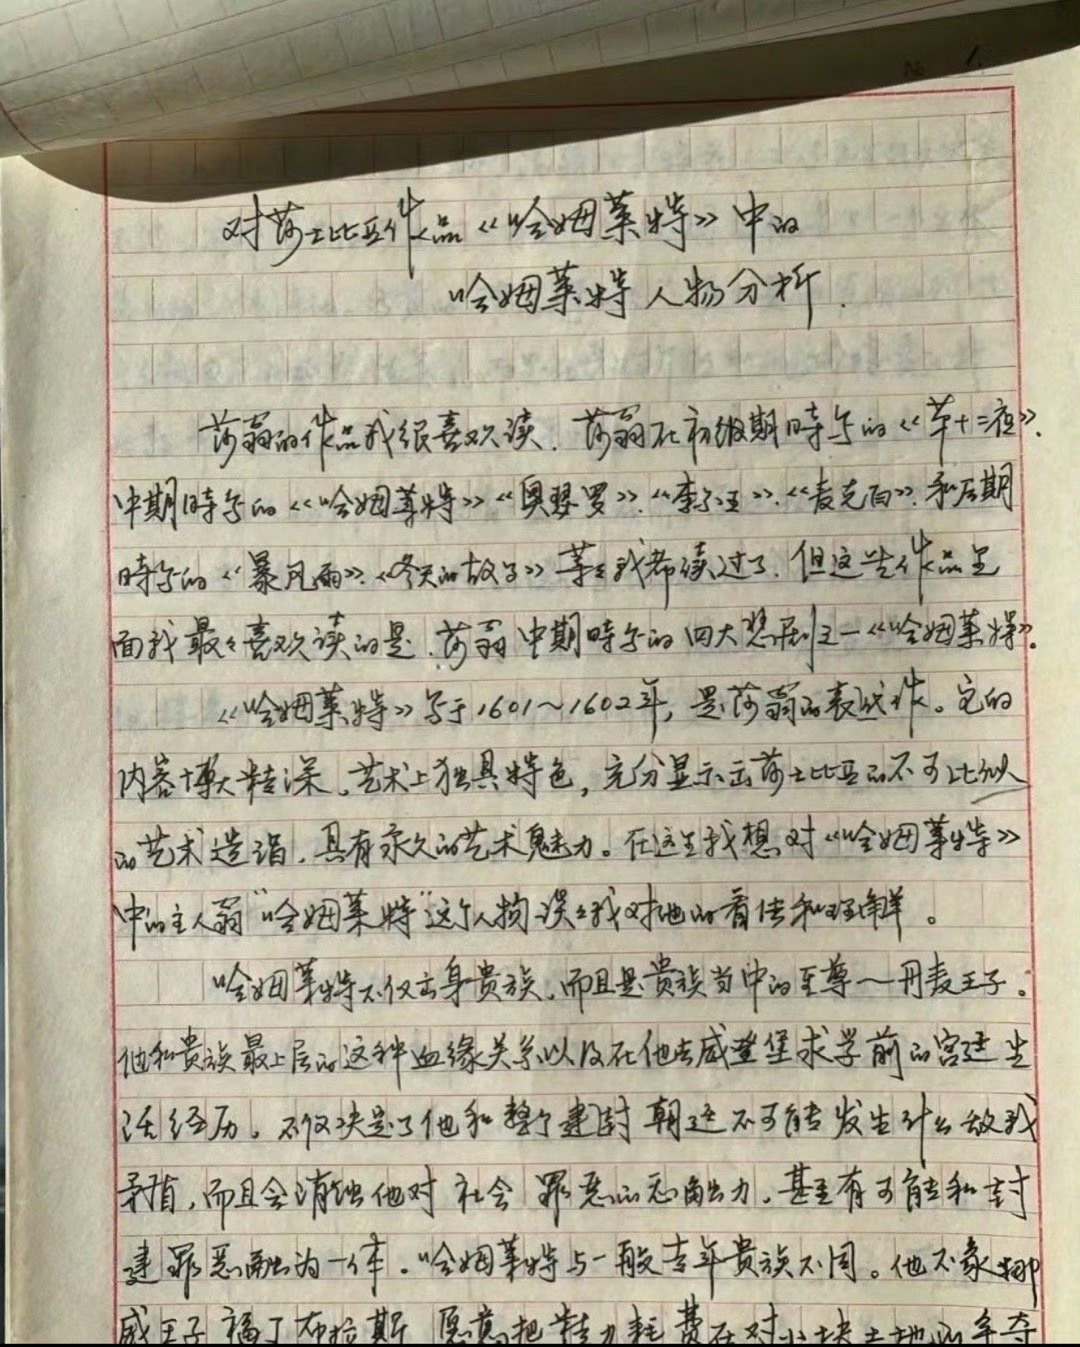 No 1.
对莎士比亚作品《哈姆莱特》中的
哈姆莱特人物分析.
莎翁的作品我很喜欢读.莎翁在初级期时写的《第十二夜》.
中期时写的《哈姆莱特》《奥瑟罗》.《李尔王》.《麦克白》.和后期
时写的《暴风雨》.《冬天的故事》等等我都读过了.但这些作品里
面我最最喜欢读的是.莎翁中期时写的四大悲剧之一《哈姆莱特》.
《哈姆莱特》写于1601～1602年,是莎翁的表代作。它的
内容博大精深.艺术上独具特色,充分显示出莎士比亚的不可比拟
的艺术造诣.具有永久的艺术魅力。在这里我想对《哈姆莱特》
中的主人翁“哈姆莱特”这个人物谈谈我对他的看法和理解。
哈姆莱特不仅出身贵族.而且是贵族当中的至尊一丹麦王子。
他和贵族最上层的这种血缘关系以及在他去威登堡求学前的宫廷生
活经历。不仅决定了他和整个建封朝廷不可能发生什么敌我
矛盾,而且会消蚀他对社会罪恶的 力.甚至有可能和封
建罪恶融为一体.哈姆莱特与一般青年贵族不同。他不象挪
威王子福丁布拉斯 愿意把精力耗费在对小块土地的争夺